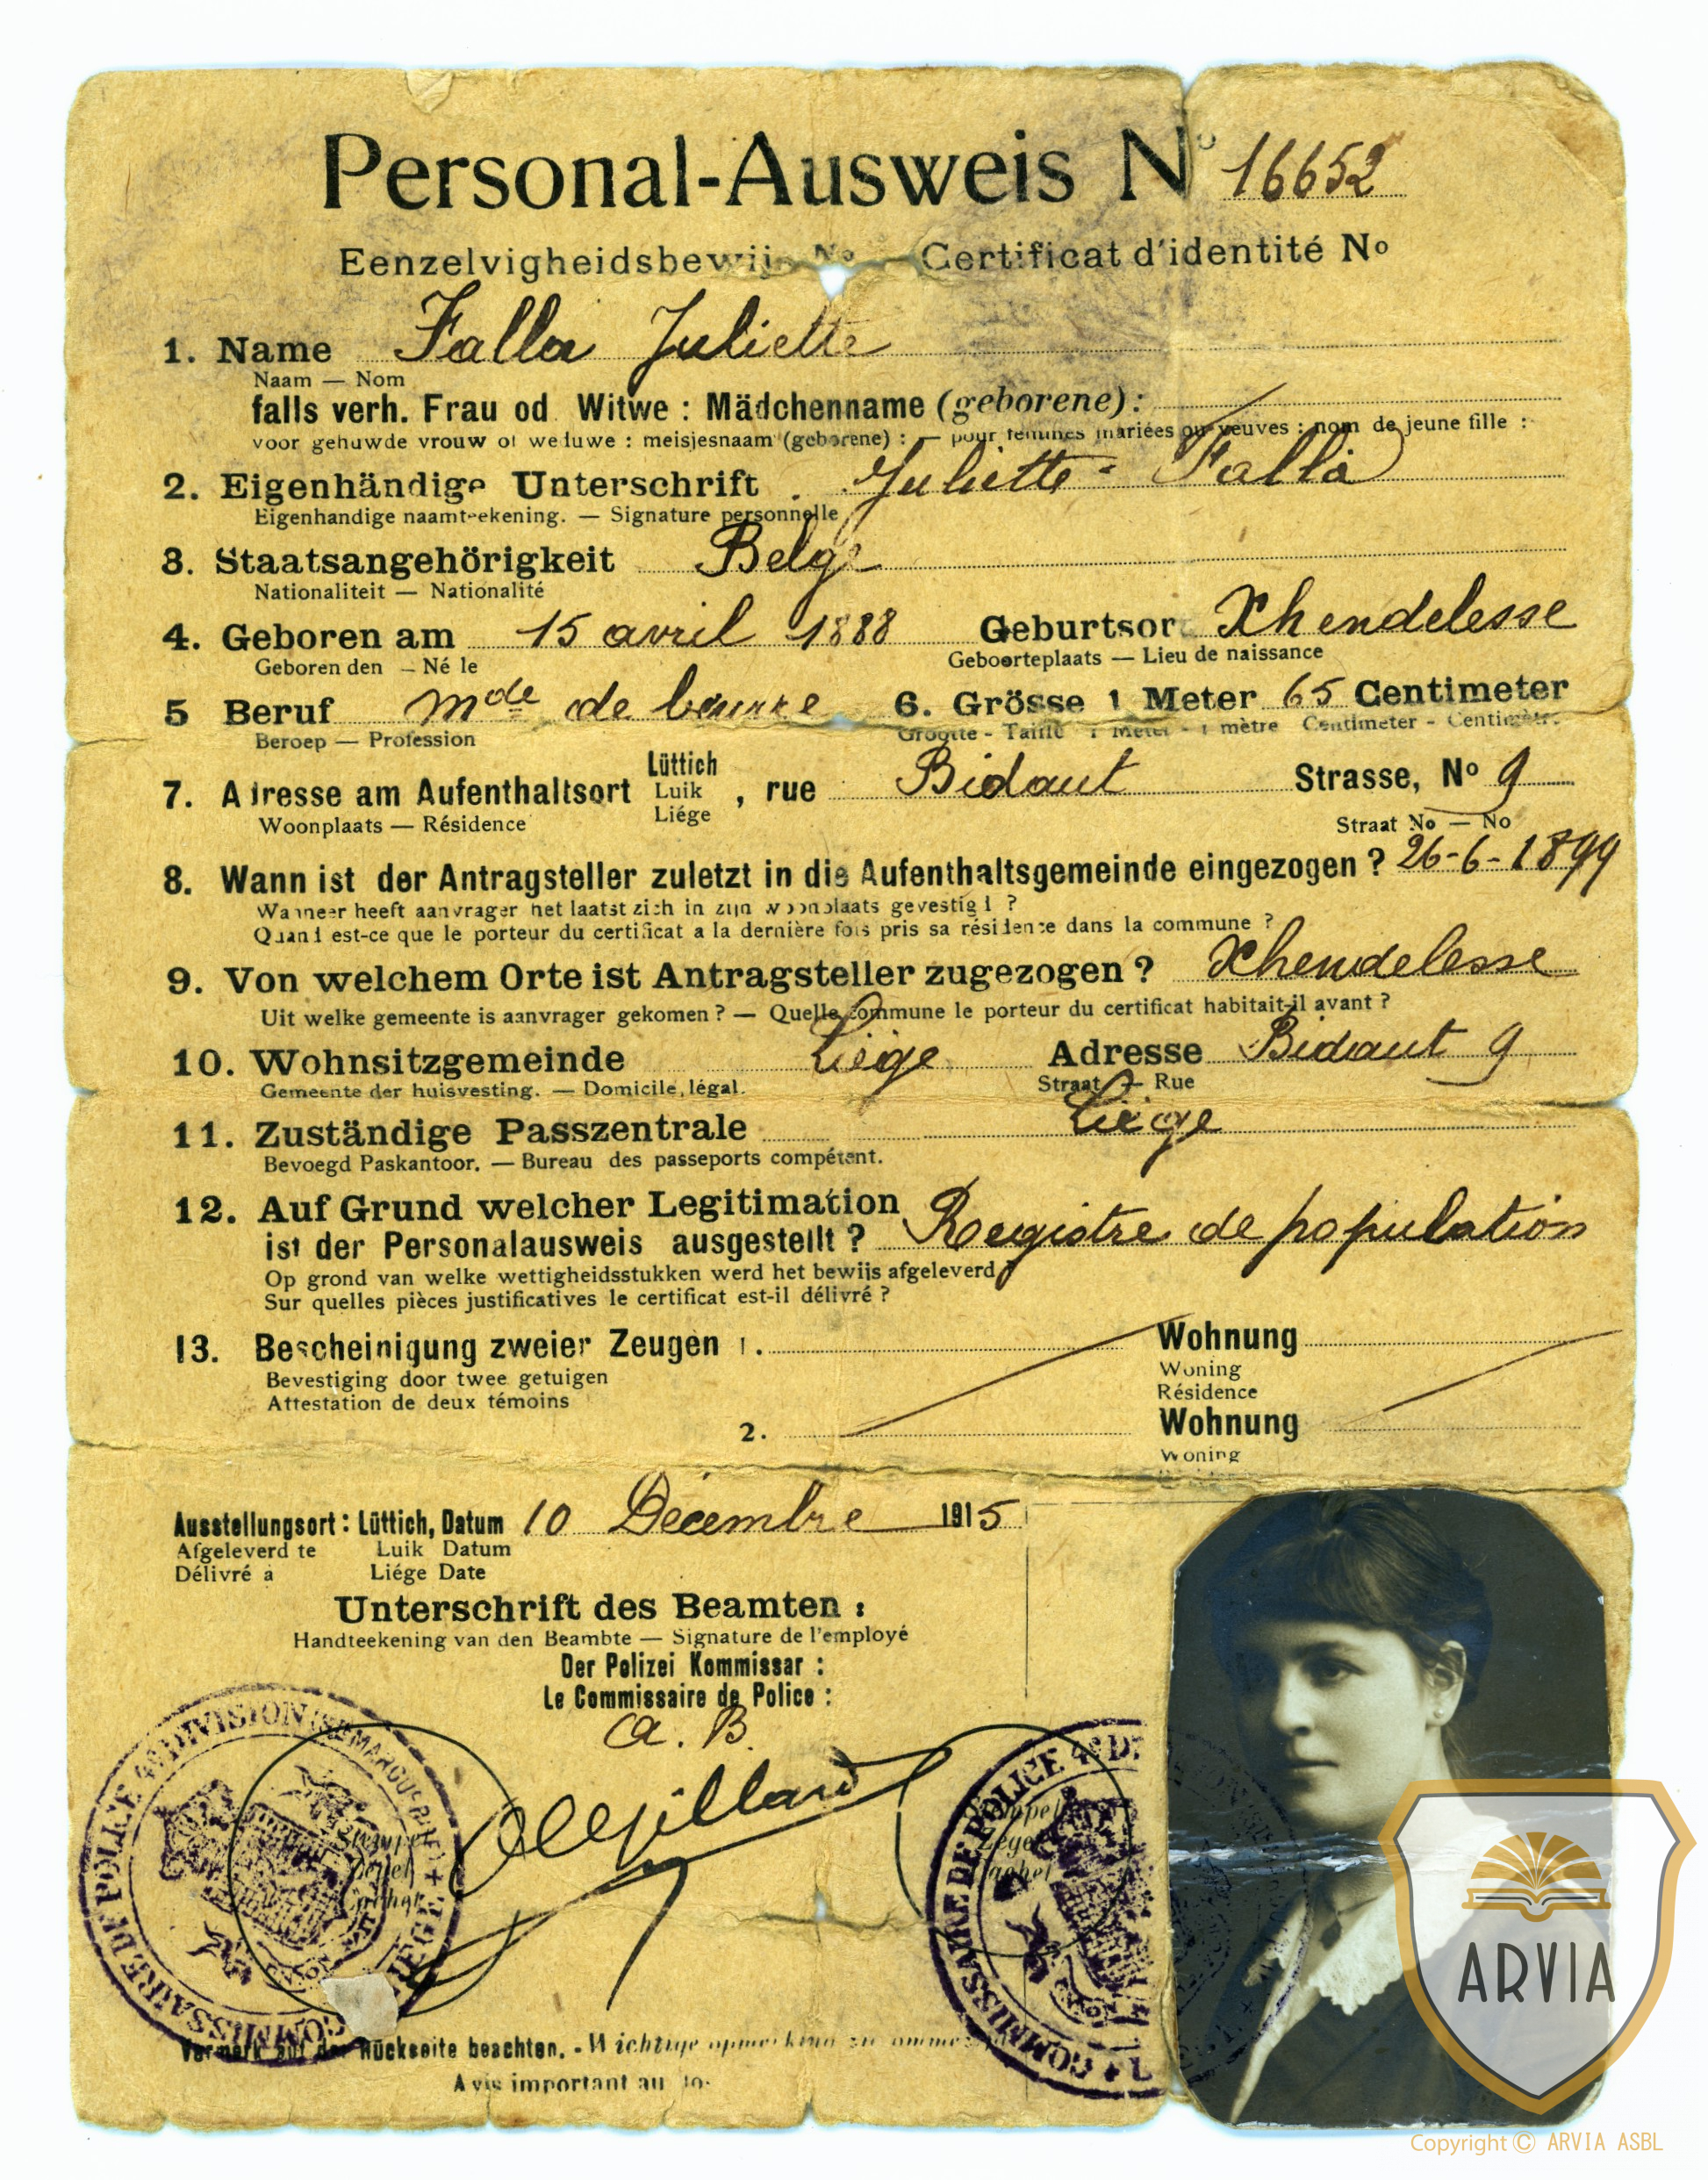 Personal-Ausweis No 16652
Eenzelvigheidsbewijs No Certificat d'identité No
1. Name Falla Juliette
Naam — Nom
falls verh. Frau od Witwe : Mädchenname (geborene) :
voor gehuwde vrouw of weduwe : meisjesnaam (geborene) : — pour femmes mariées ou veuves : nom de jeune fille :
2. Eigenhändige Unterschrift . Juliette - Falla
Eigenhandige naamteekening. — Signature personnelle
3. Staatsangehörigkeit Belge
Nationaliteit — Nationalité
4. Geboren am 15 avril 1888 Geburtsort Xhendelesse
Geboren den — Né le Geboorteplaats — Lieu de naissance
5 Beruf mde de beurre 6. Grösse 1 Meter 65 Centimeter
Beroep — Profession Grootte - Taille 1 Meter - 1 mètre Centimeter - Centimètr.
7. Adresse am Aufenthaltsort Lüttich Luik Liége , rue Bidaut Strasse, No 9
Woonplaats — Résidence Straat No — No
8. Wann ist der Antragsteller zuletzt in die Aufenthaltsgemeinde eingezogen ? 26-6-1899
Wanneer heeft aanvrager het laatst zich in zijn woonplaats gevestigd ?
Quand est-ce que le porteur du certificat a la dernière fois pris sa résidence dans la commune ?
9. Von welchem Orte ist Antragsteller zugezogen ? Xhendelesse
Uit welke gemeente is aanvrager gekomen ? — Quelle commune le porteur du certificat habitait-il avant ?
10. Wohnsitzgemeinde Liége Adresse Bidaut 9
Gemeente der huisvesting. — Domicile légal. Straat — Rue
11. Zuständige Passzentrale Liége
Bevoegd Paskantoor. — Bureau des passeports compétent.
12. Auf Grund welcher Legitimation
ist der Personalausweis ausgestellt ? Registre de population
Op grond van welke wettigheidsstukken werd het bewijs afgeleverd ?
Sur quelles pièces justificatives le certificat est-il délivré ?
13. Bescheinigung zweier Zeugen 1. Wohnung
Bevestiging door twee getuigen Woning
Attestation de deux témoins Résidence
2. Wohnung
Woning
Ausstellungsort : Lüttich, Datum 10 Décembre 1915
Afgeleverd te Luik Datum
Délivré a Liége Date
Unterschrift des Beamten :
Handteekening van den Beambte — Signature de l'employé
Der Polizei Kommissar :
Le Commissaire de Police :
a. B.
COMMISSAIRE DE POLICE 4e DIVISION
COMMISSAIRE DE POLICE 4e
Vermerk auf der Rückseite beachten. - Wichtige opmerking
Avis important au
ARVIA
Copyright © ARVIA ASBL